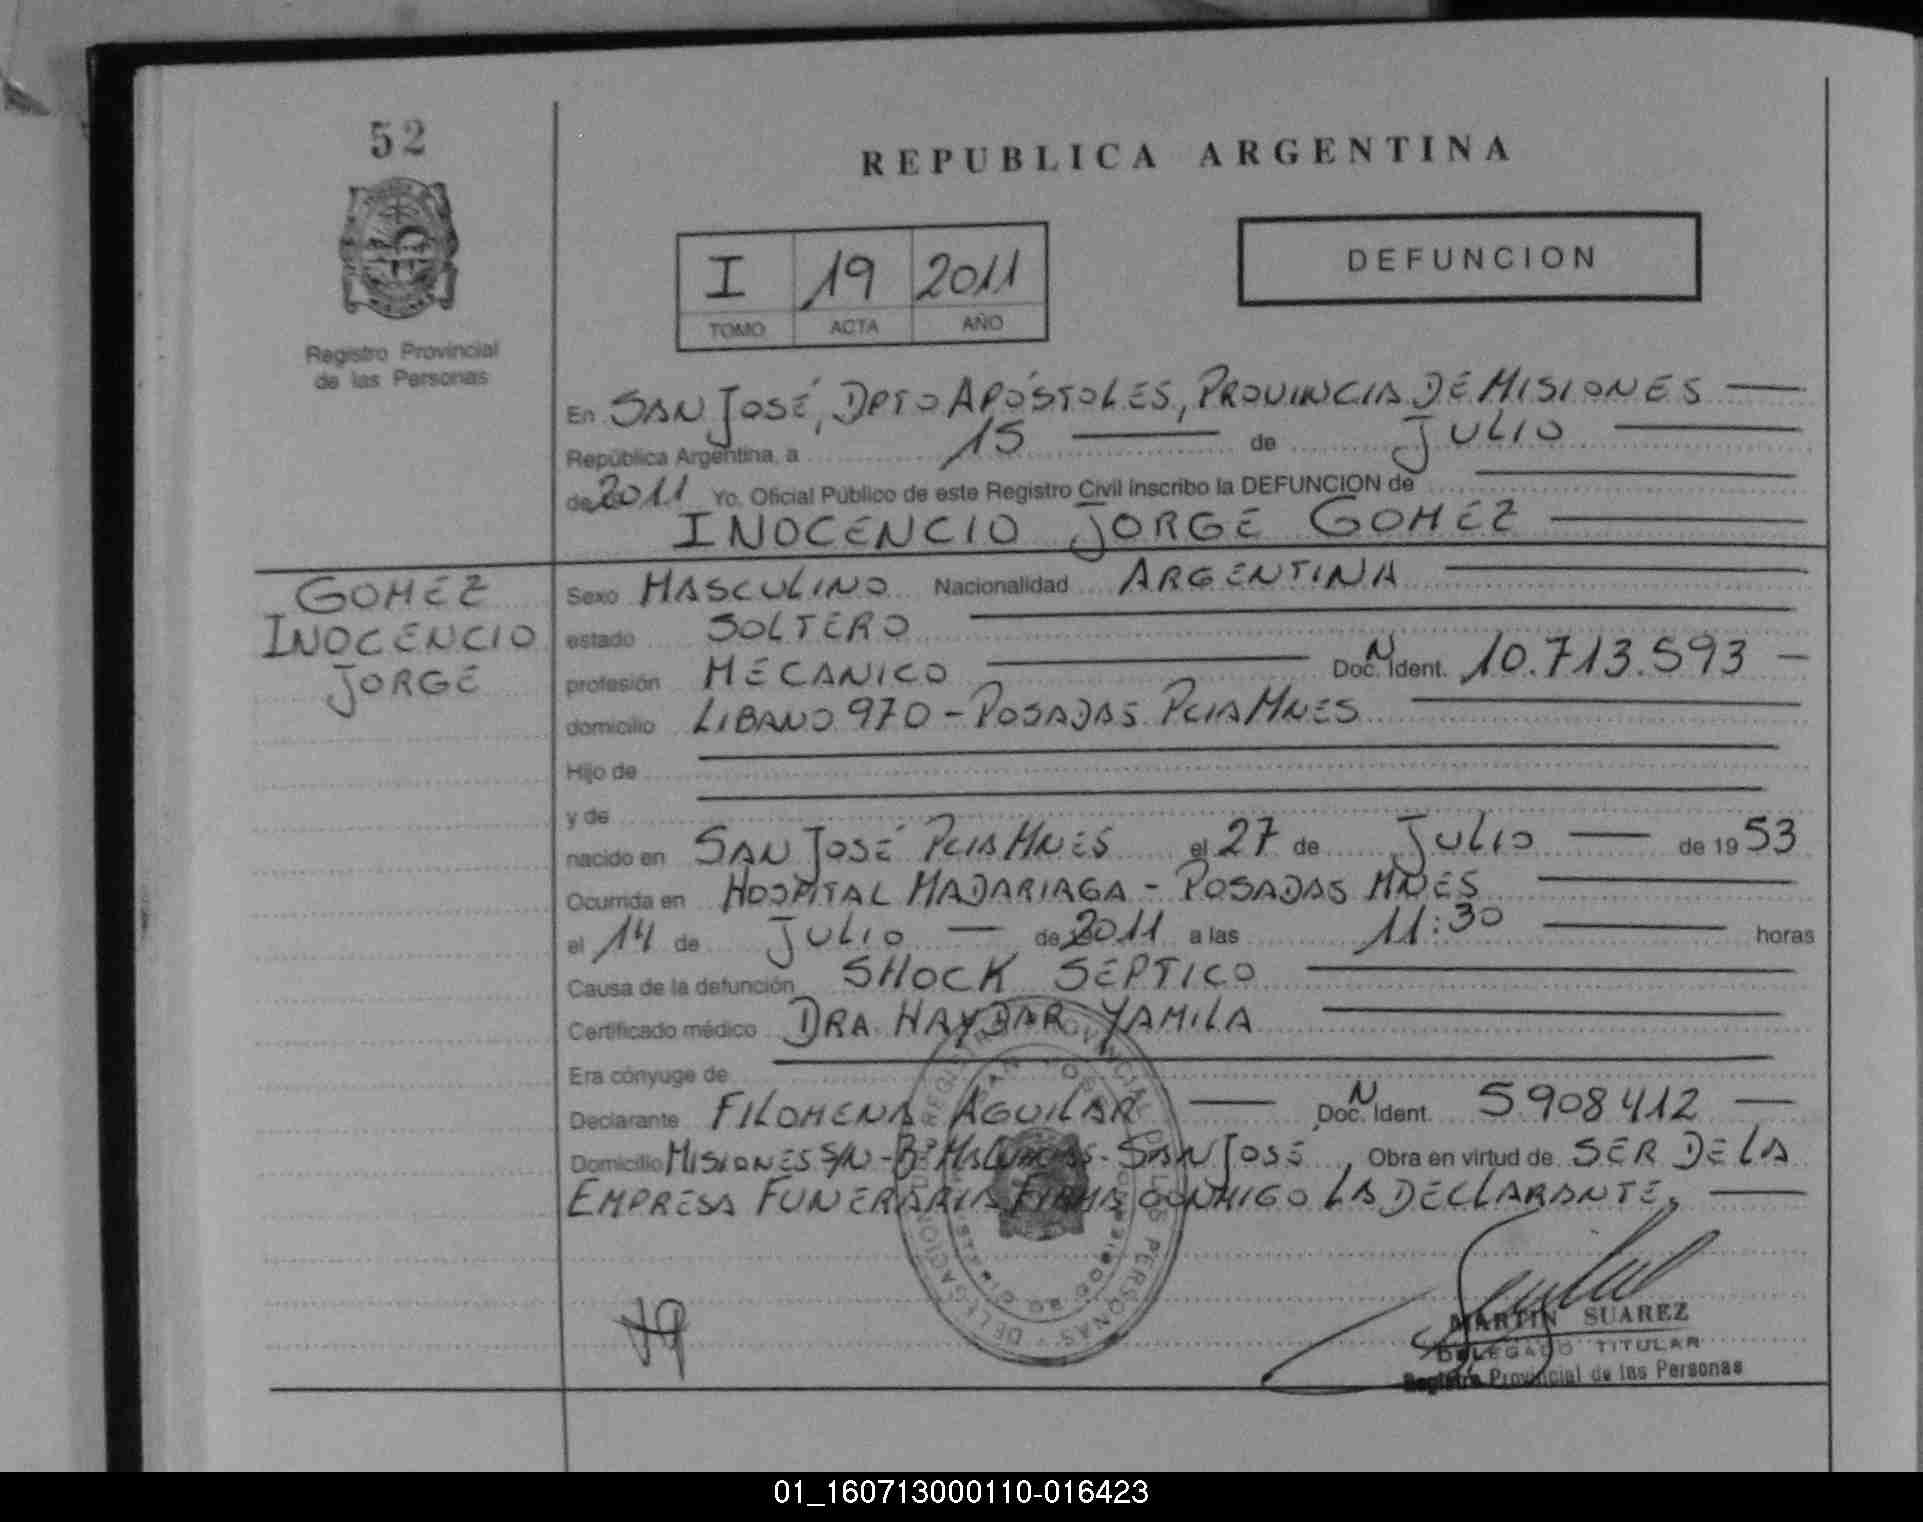 52
REPUBLICA ARGENTINA
I 19 2011
TOMO ACTA AÑO
DEFUNCION
Registro Provincial
de las Personas
En SAN JOSÉ, DPTO APÓSTOLES, PROVINCIA DE MISIONES
República Argentina, a 15 de JULIO
de 2011 Yo, Oficial Público de este Registro Civil inscribo la DEFUNCION de
INOCENCIO JORGE GOMEZ
GOMEZ
INOCENCIO
JORGE
Sexo MASCULINO Nacionalidad ARGENTINA
estado SOLTERO
profesión MECANICO Doc. N Ident. 10.713.593
domicilio LIBANO 970 - POSADAS PCIA MNES
Hijo de
y de
nacido en SAN JOSÉ PCIA MNES el 27 de JULIO de 19 53
Ocurrida en HOSPITAL MADARIAGA - POSADAS MNES
el 14 de JULIO de 2011 a las 11:30 horas
Causa de la defunción SHOCK SEPTICO
Certificado médico DRA HAYDAR YAMILA
Era cónyuge de
Declarante FILOMENA AGUILAR Doc. N Ident. 5908412
Domicilio MISIONES S/N - Bº MALVINAS - SAN JOSÉ, Obra en virtud de SER DE LA
EMPRESA FUNERARIA FIRMA CONMIGO LA DECLARANTE.
REGISTRO PROVINCIAL DE LAS PERSONAS - DELEGACION
SAN JOSE
MARTIN SUAREZ
DELEGADO TITULAR
Registro Provincial de las Personas
01_160713000110-016423